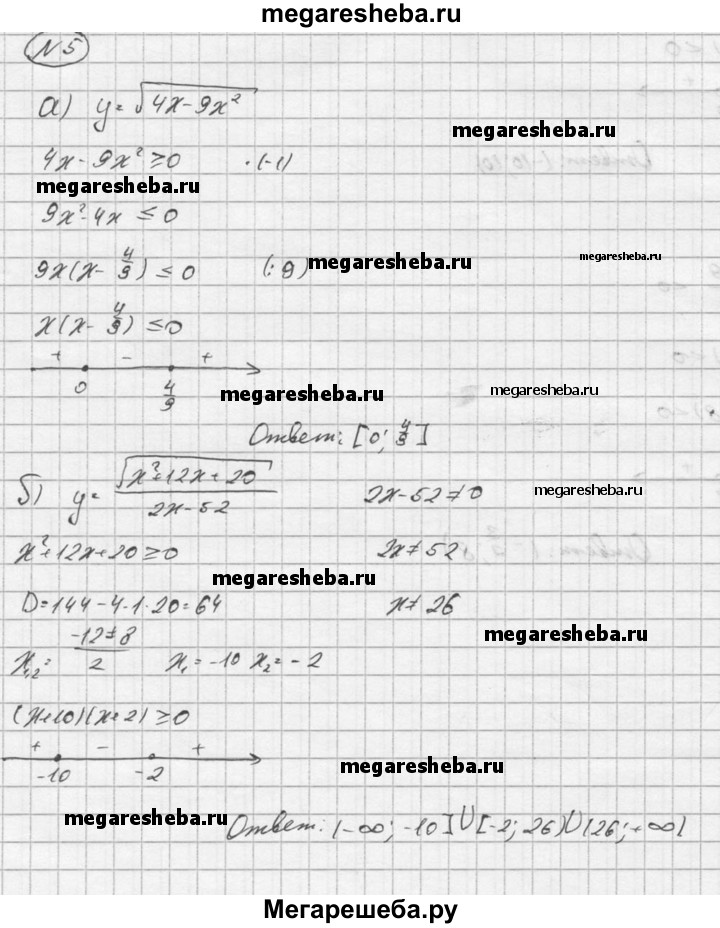 megaresheba.ru
N5
а) y = √(4x - 9x²)
megaresheba.ru
4x - 9x² ≥ 0 · (-1)
megaresheba.ru
9x² - 4x ≤ 0
9x(x - 4/9) ≤ 0 (: 9) megaresheba.ru megaresheba.ru
x(x - 4/9) ≤ 0
+ - +
0 4/9
megaresheba.ru megaresheba.ru
Ответ: [0; 4/9]
б) y = √(x² + 12x + 20) / (2x - 52) 2x - 52 ≠ 0 megaresheba.ru
x² + 12x + 20 ≥ 0 2x ≠ 52
megaresheba.ru
D = 144 - 4 · 1 · 20 = 64 x ≠ 26
megaresheba.ru
x₁,₂ = (-12 ± 8) / 2 x₁ = -10 x₂ = -2
(x + 10)(x + 2) ≥ 0
+ - +
-10 -2
megaresheba.ru
megaresheba.ru
Ответ: (-∞; -10] ∪ [-2; 26) ∪ (26; +∞)
Мегарешеба.ру